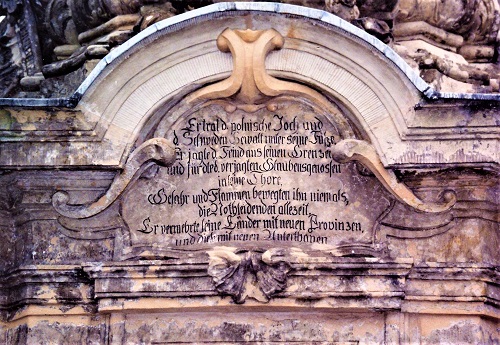 Er trat d. polnische Joch und
d. Schweden Gewalt unter seine Füße.
Er jagte d. Feind aus seinen Grenzen
und für d. verjagten Glaubensgenossen
in seine Thore.
Gefahr und Flammen bewegten ihn niemals,
die Notleidenden allezeit.
Er vermehrte seine Länder mit neuen Provinzen,
und mit neuen Unterthanen